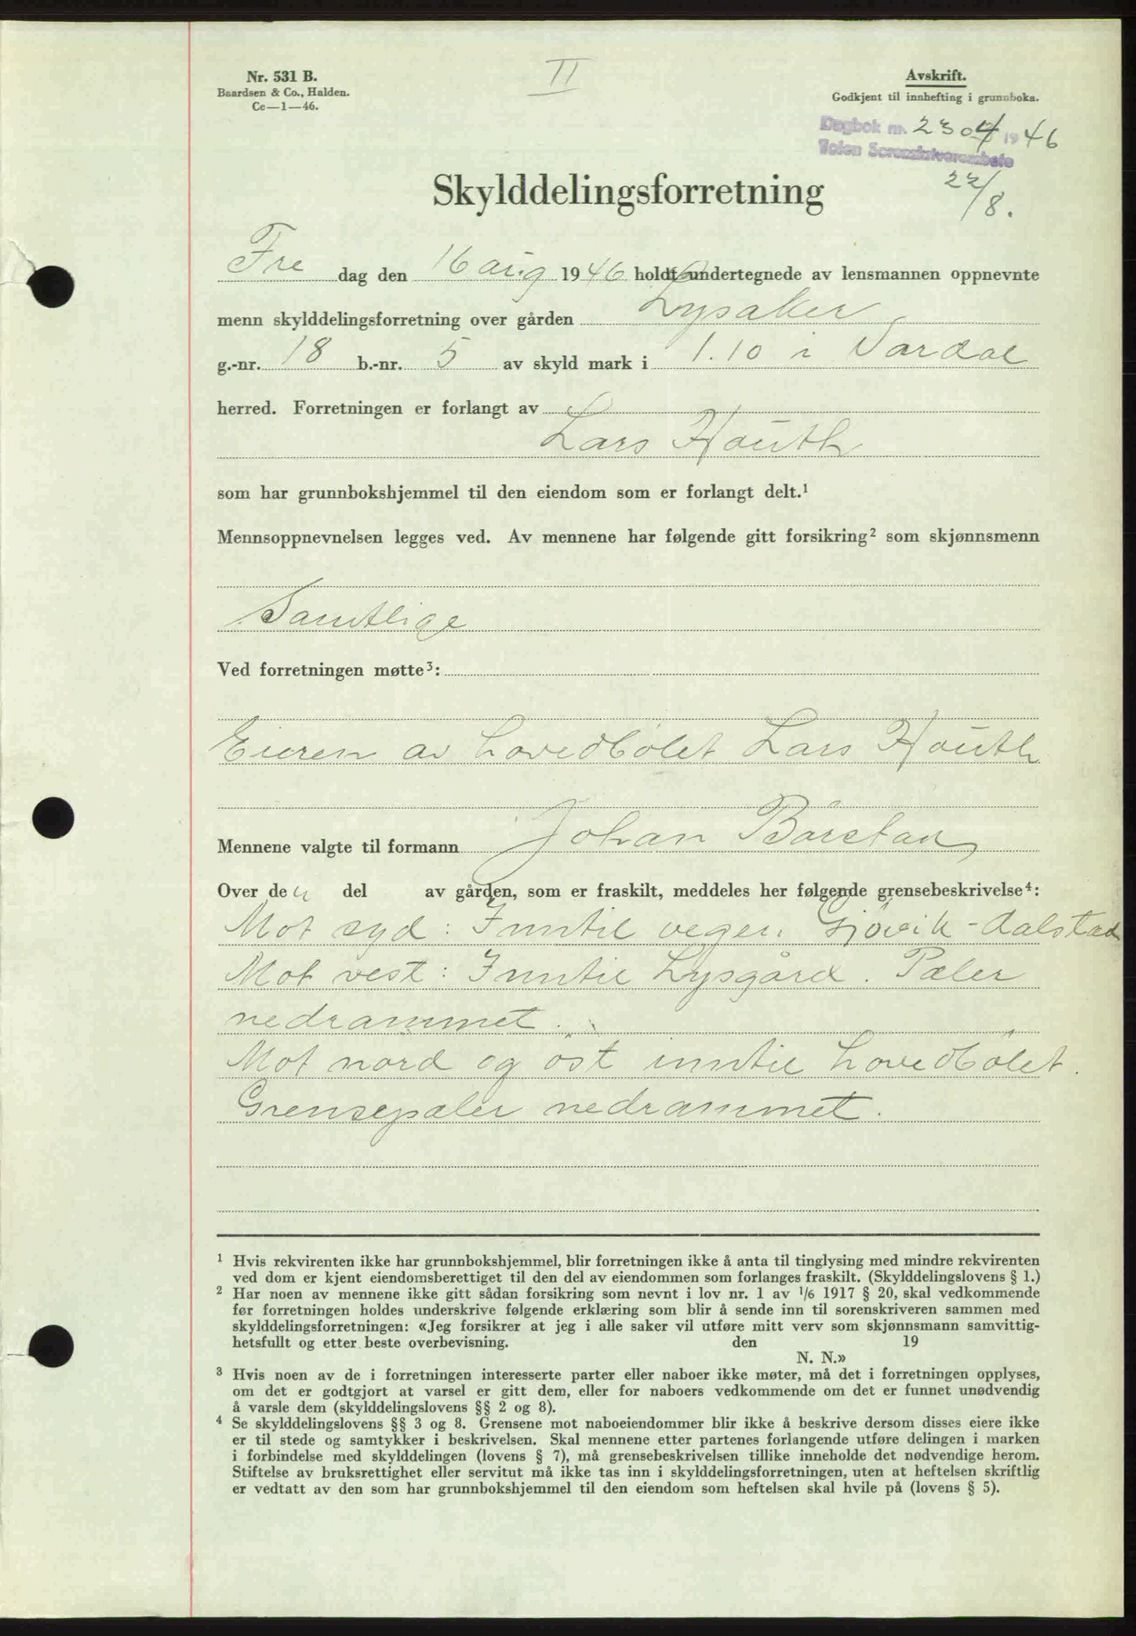 Nr. 531 B.
Baardsen & Co., Halden.
Ce—1—46.
II
Avskrift.
Godkjent til innhefting i grunnboka.
Dagbok nr. 2304 1946
Toten Sorenskriverembete
22/8.
Skylddelingsforretning
Fre dag den 16 aug 1946 holdt undertegnede av lensmannen oppnevnte
menn skylddelingsforretning over gården Lysaker
g.-nr. 18 b.-nr. 5 av skyld mark i 1.10 i Vardal
herred. Forretningen er forlangt av
Lars Houth
som har grunnbokshjemmel til den eiendom som er forlangt delt.¹
Mennsoppnevnelsen legges ved. Av mennene har følgende gitt forsikring² som skjønnsmenn
Samtlige
Ved forretningen møtte³:
Eieren av hovedbølet Lars Houth
Mennene valgte til formann Johan Bårstad
Over den del av gården, som er fraskilt, meddeles her følgende grensebeskrivelse⁴:
Mot syd: Inntil vegen Gjøvik-Aalstad
Mot vest: Inntil Lysgård. Pæler
nedrammet.
Mot nord og öst inntil hovedbölet.
Grensepæler nedrammet.
¹ Hvis rekvirenten ikke har grunnbokshjemmel, blir forretningen ikke å anta til tinglysing med mindre rekvirenten
ved dom er kjent eiendomsberettiget til den del av eiendommen som forlanges fraskilt. (Skylddelingslovens § 1.)
² Har noen av mennene ikke gitt sådan forsikring som nevnt i lov nr. 1 av 1/6 1917 § 20, skal vedkommende
før forretningen holdes underskrive følgende erklæring som blir å sende inn til sorenskriveren sammen med
skylddelingsforretningen: «Jeg forsikrer at jeg i alle saker vil utføre mitt verv som skjønnsmann samvittig-
hetsfullt og etter beste overbevisning. den 19
N. N.»
³ Hvis noen av de i forretningen interesserte parter eller naboer ikke møter, må det i forretningen opplyses,
om det er godtgjort at varsel er gitt dem, eller for naboers vedkommende om det er funnet unødvendig
å varsle dem (skylddelingslovens §§ 2 og 8).
⁴ Se skylddelingslovens §§ 3 og 8. Grensene mot naboeiendommer blir ikke å beskrive dersom disses eiere ikke
er til stede og samtykker i beskrivelsen. Skal mennene etter partenes forlangende utføre delingen i marken
i forbindelse med skylddelingen (lovens § 7), må grensebeskrivelsen tillike inneholde det nødvendige herom.
Stiftelse av bruksrettighet eller servitut må ikke tas inn i skylddelingsforretningen, uten at heftelsen skriftlig
er vedtatt av den som har grunnbokshjemmel til den eiendom som heftelsen skal hvile på (lovens § 5).